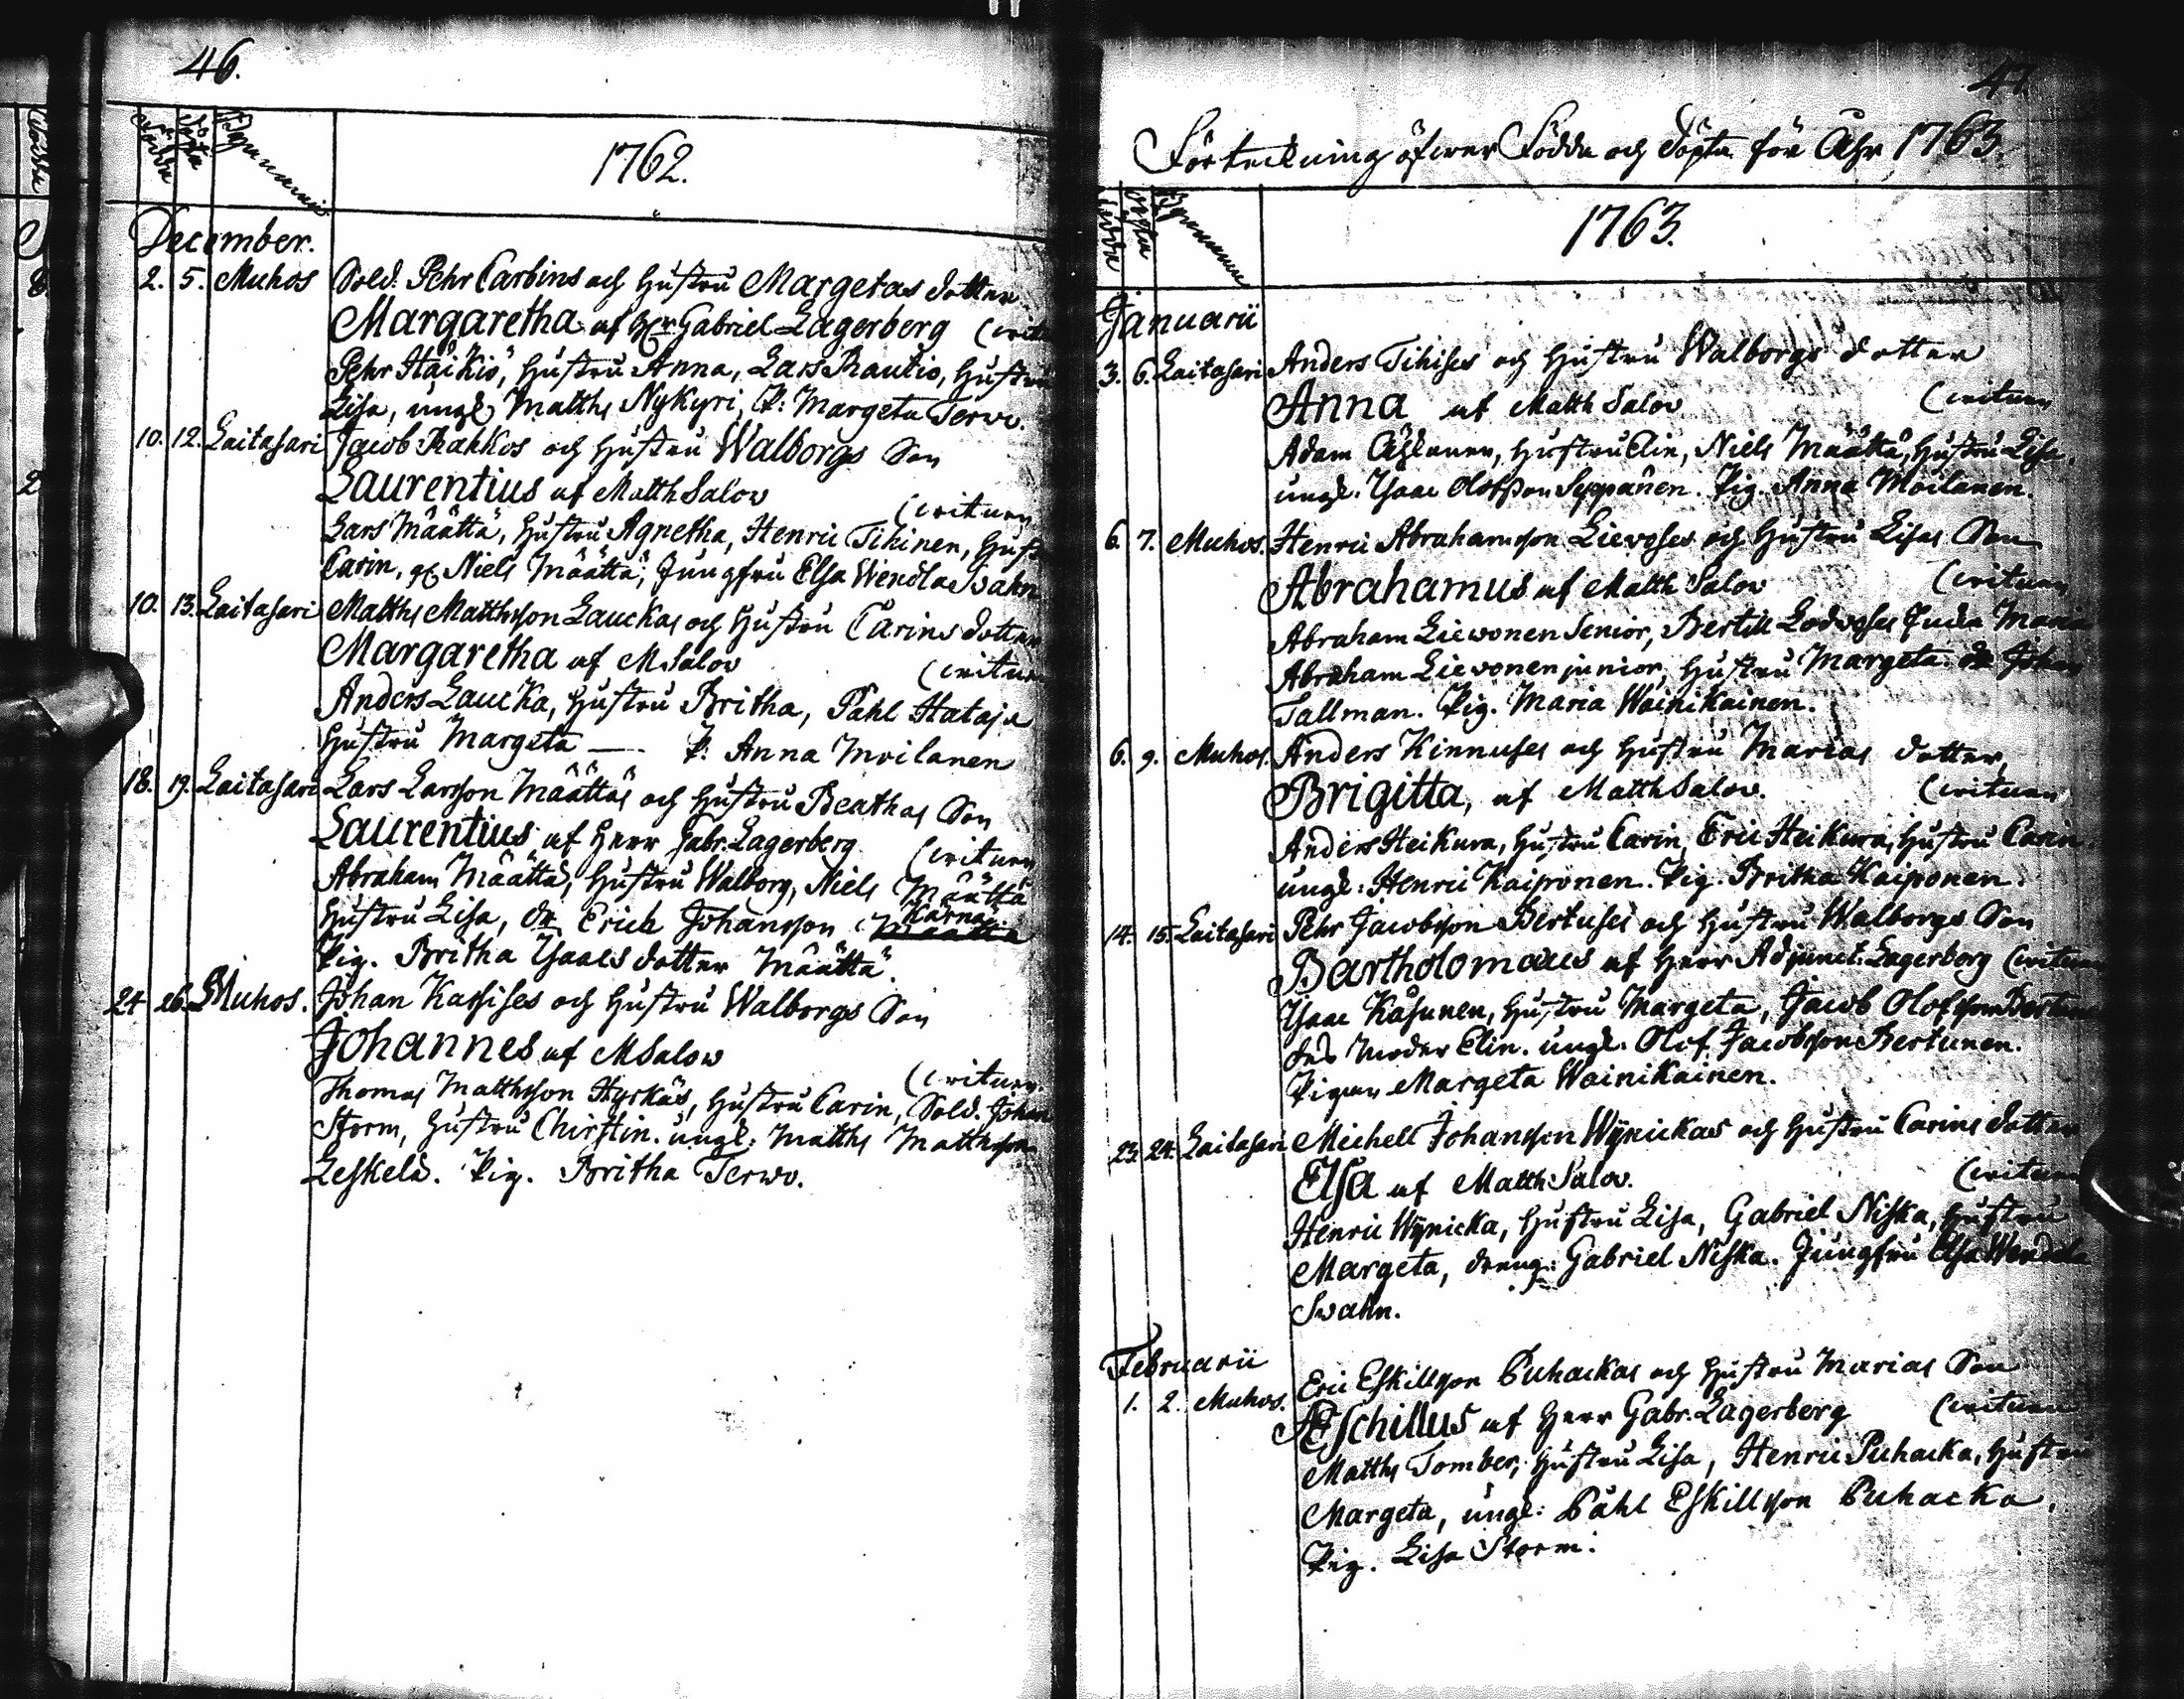 46.
Födde
Döpta
Byarnamn
1762.
December.
2. 5. Muhos Sold. Pehr Carbins och Hustru Margetas dotter
Margaretha af Hr Gabriel Lagerberg (vitn
Pehr Häikiö, Hustru Anna, Lars Rautio, Hustru
Lisa, ungk Matths Nykyri, P: Margeta Terwo.
10. 12. Laitasari Jacob Rahkos och Hustru Walborgs Son
Laurentius af Matth Salov (vituru
Lars Määttä, Hustru Agnetha, Henric Tihinen, Hust
Carin, Niels Määttä, Jungfru Elsa Wendla Svahn
10. 13. Laitasari Matths Matthsson Lauckas och Hustru Carins dotter
Margaretha af M. Salov (vitur
Anders Laucka, Hustru Britha, Påhl Hataja
Hustru Margeta — P: Anna Moilanen
18. 19. Laitasari Lars Larsson Määttäs och Hustru Beathas Son
Laurentius af Herr Gabr. Lagerberg (vituru
Abraham Määttä, Hustru Walborg, Niels Määttä
Hustru Lisa, dr. Erich Johansson Kärnä Määttä
Pig. Britha Isaacs dotter Määttä.
24 26. Muhos. Johan Kassises och Hustru Walborgs Son
Johannes af M Salow (vituru.
Thomas Matthsson Hyrkäs, Hustru Carin, Sold. Johan
Storm, Hustru Chirstin. ungk: Matths Matthsson
Leskelä. Pig. Britha Terwo.
47.
Förteckning öfwer Födda och Döpta för Åhr 1763.
Födda
Döpta
Byanamn
1763.
Januarii
3. 6. Laitasari Anders Tihises och Hustru Walborgs dotter
Anna af Matth Salov (vituru
Adam Ahlouner, Hustru Elin, Niels Määttä, Hustru Lisa,
ungk. Isaac Olofsson Seppänen. Pig. Anna Moilanen.
6. 7. Muhos. Henric Abrahamsson Lievoses och Hustru Lisas Son
Abrahamus af Matth Salov (vituru
Abraham Liewonen Senior, Bertill Lodvoses Enka Maria
Abraham Lievonen junior, Hustru Margeta. dr Johan
Tallman. Pig. Maria Wainikainen.
6. 9. Muhos. Anders Kinnuses och Hustru Marias dotter
Brigitta, af Matth Salov. (vituru
Anders Heikura, Hustru Carin, Eric Heikura, Hustru Carin.
ungk: Henric Kaiponen. Pig. Britha Kaiponen.
14. 15. Laitasari Pehr Jacobsson Bertuses och Hustru Walborgs Son
Bartholomæus af Herr Adjunct. Lagerberg (vituru
Isaac Kåsunen, Hustru Margeta, Jacob Olofsson Bertune
des Moder Elin. ungk. Olof Jacobsson Bertunen.
Pigan Margeta Wainikainen.
23. 24. Laitasari Michell Johansson Wÿrickas och Hustru Carins dotter
Elsa af Matth: Salov. (vituru
Henric Wÿricka, Hustru Lisa, Gabriel Niska, Hustru
Margeta, dreng: Gabriel Niska. Jungfru Elsa Wendela
Svahn.
Februarii
1. 2. Muhos. Eric Eskillsson Puhackas och Hustru Marias Son
Æschillus af Herr Gabr. Lagerberg (vituru
Matths Tomber, Hustru Lisa, Henric Puhacka, Hustru
Margeta, ungk: Påhl Eskillsson Puhacka,
Pig. Lisa Storm.